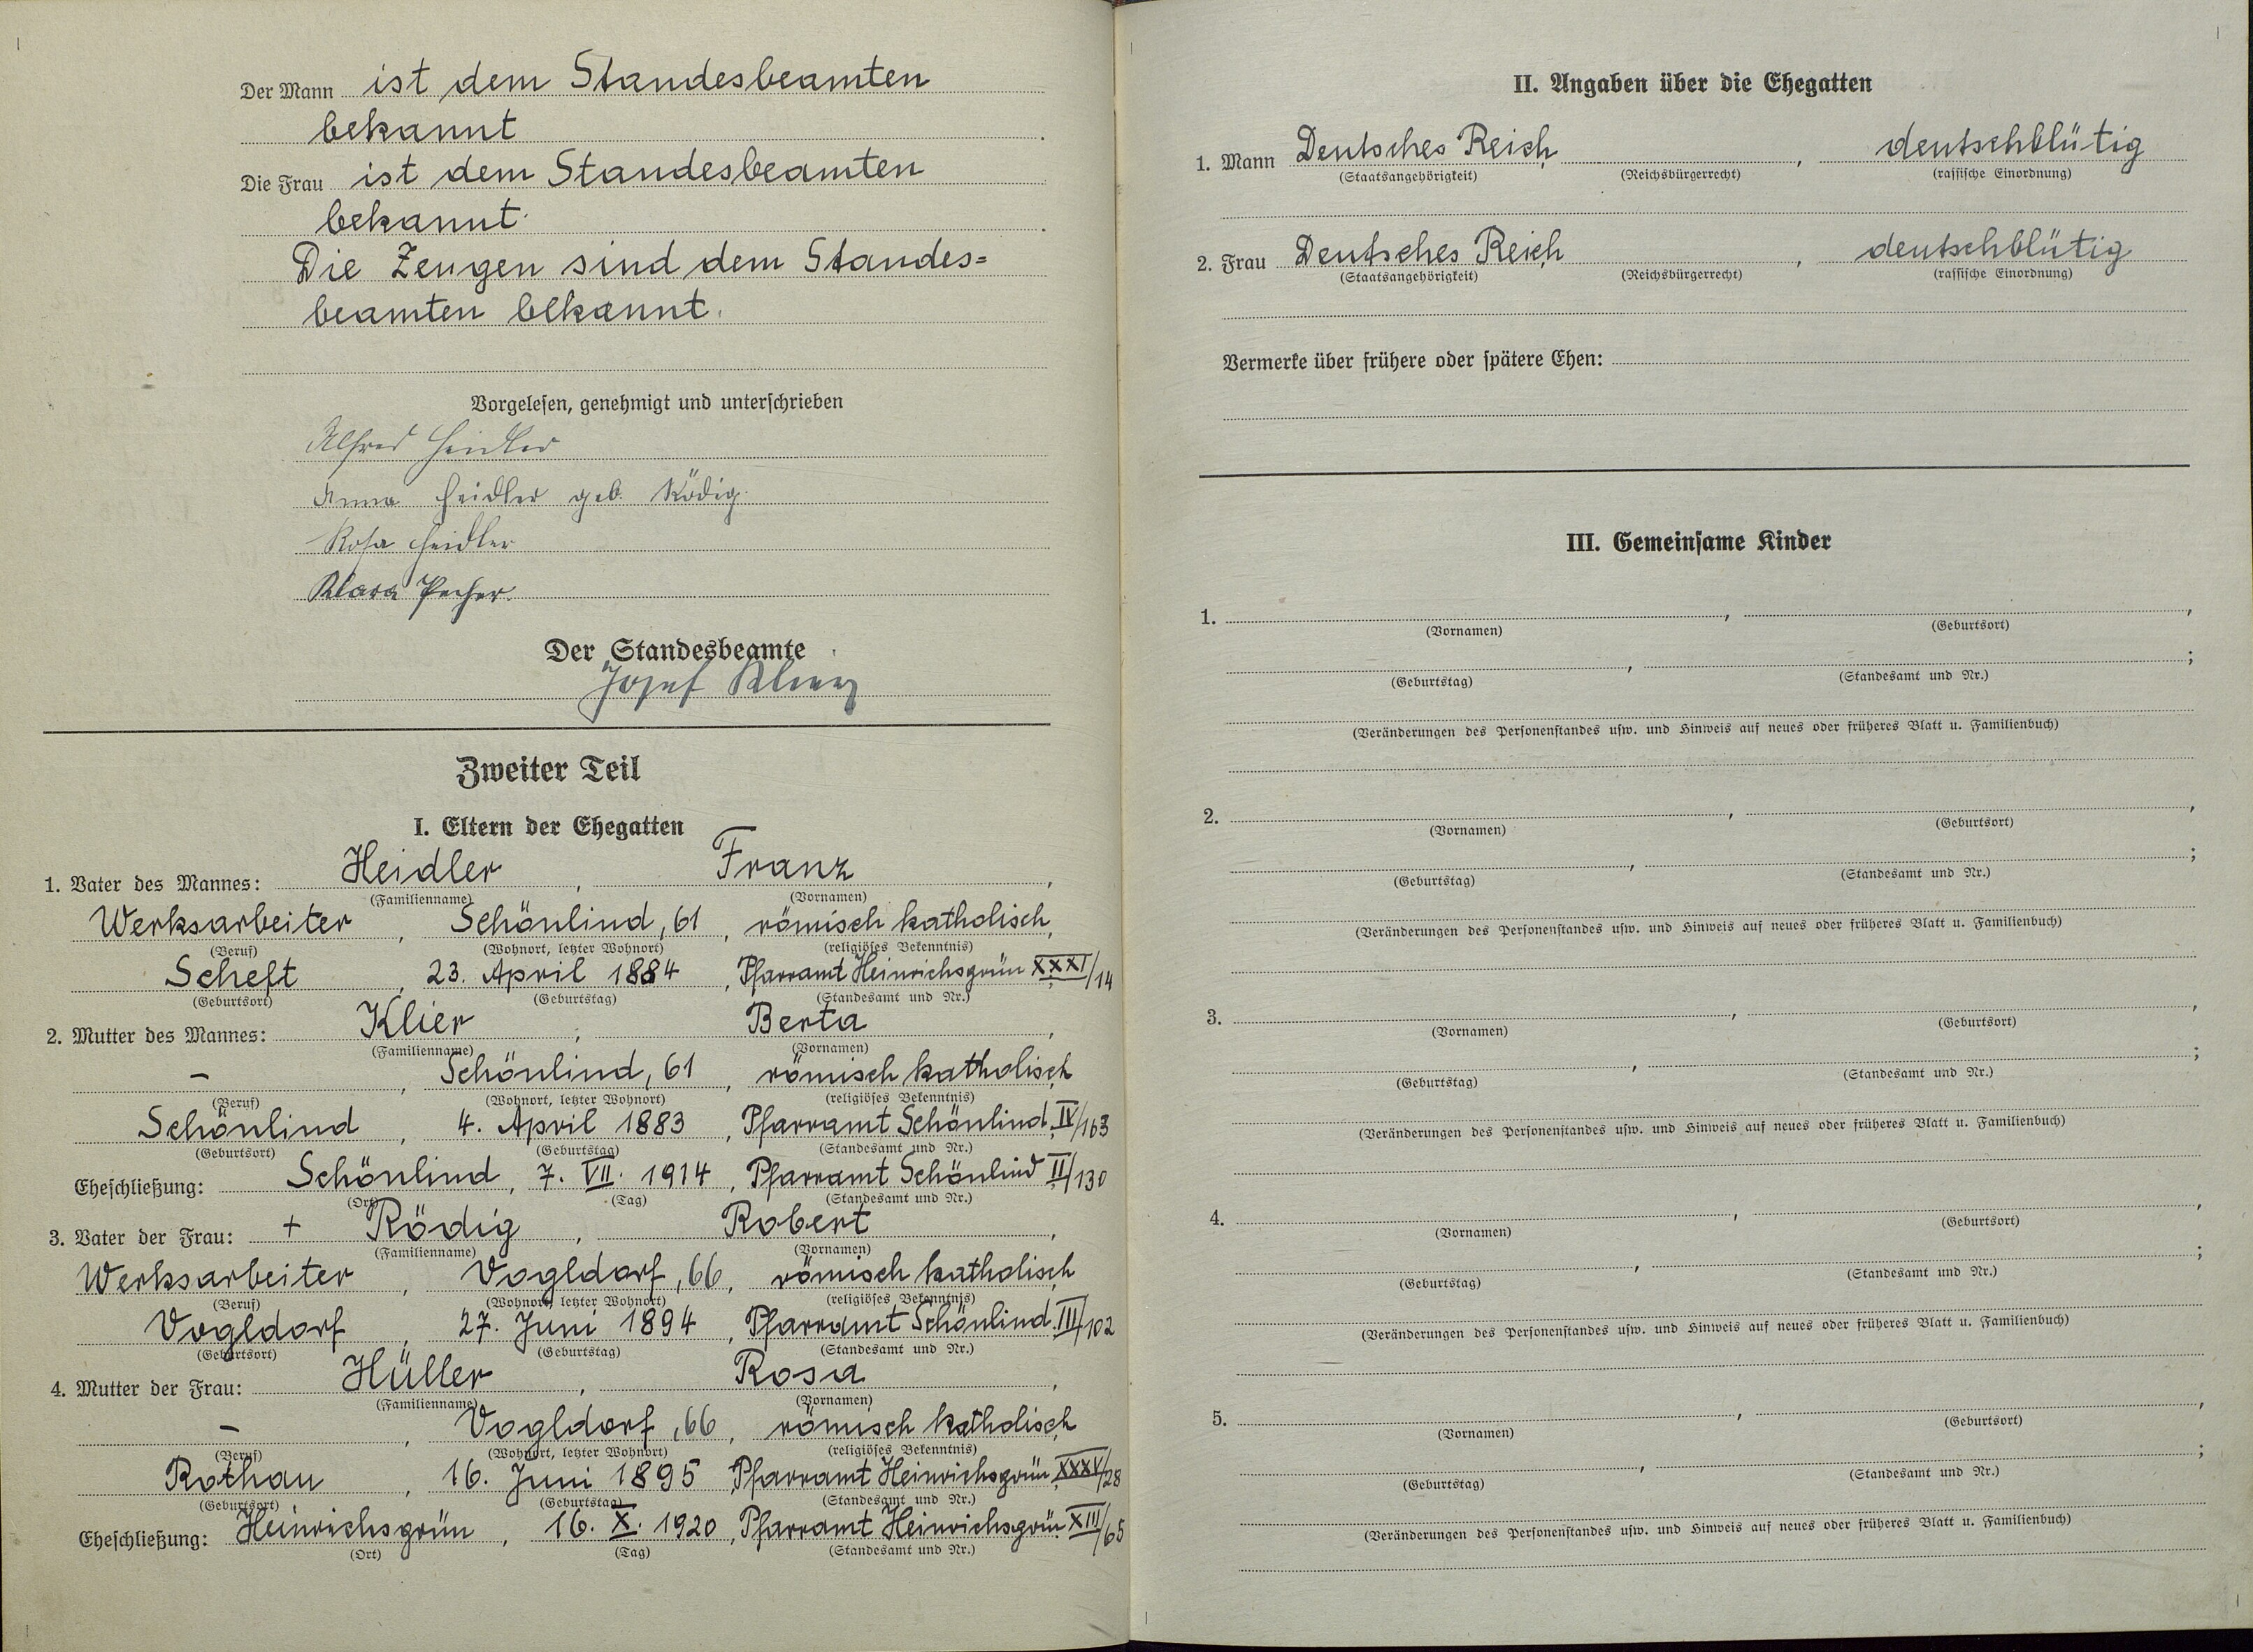 Der Mann ist dem Standesbeamten
bekannt.
Die Frau ist dem Standesbeamten
bekannt.
Die Zeugen sind dem Standes=
beamten bekannt.
Vorgelesen, genehmigt und unterschrieben
Alfred Heidler
Anna Heidler geb. Rödig.
Rosa Heidler
Klara Pecher.
Der Standesbeamte
Josef
Zweiter Teil
I. Eltern der Ehegatten
1. Vater des Mannes: Heidler, Franz,
(Familienname) (Vornamen)
Werksarbeiter, Schönlind, 61, römisch katholisch,
(Beruf) (Wohnort, letzter Wohnort) (religiöses Bekenntnis)
Scheft, 23. April 1884, Pfarramt Heinrichsgrün XXXI/14
(Geburtsort) (Geburtstag) (Standesamt und Nr.)
2. Mutter des Mannes: Klier, Berta,
(Familienname) (Vornamen)
–, Schönlind, 61, römisch katholisch
(Beruf) (Wohnort, letzter Wohnort) (religiöses Bekenntnis)
Schönlind, 4. April 1883, Pfarramt Schönlind IV/163
(Geburtsort) (Geburtstag) (Standesamt und Nr.)
Eheschließung: Schönlind, 7. VII. 1914, Pfarramt Schönlind II/130
(Ort) (Tag) (Standesamt und Nr.)
3. Vater der Frau: + Rödig, Robert,
(Familienname) (Vornamen)
Werksarbeiter, Vogldorf, 66, römisch katholisch
(Beruf) (Wohnort, letzter Wohnort) (religiöses Bekenntnis)
Vogldorf, 27. Juni 1894, Pfarramt Schönlind III/102
(Geburtsort) (Geburtstag) (Standesamt und Nr.)
4. Mutter der Frau: Hüller, Rosa,
(Familienname) (Vornamen)
–, Vogldorf, 66, römisch katholisch
(Beruf) (Wohnort, letzter Wohnort) (religiöses Bekenntnis)
Rothau, 16. Juni 1895, Pfarramt Heinrichsgrün XXXV/28
(Geburtsort) (Geburtstag) (Standesamt und Nr.)
Eheschließung: Heinrichsgrün, 16. X. 1920, Pfarramt Heinrichsgrün XIII/65
(Ort) (Tag) (Standesamt und Nr.)
II. Angaben über die Ehegatten
1. Mann Deutsches Reich, deutschblütig
(Staatsangehörigkeit) (Reichsbürgerrecht) (rassische Einordnung)
2. Frau Deutsches Reich, deutschblütig
(Staatsangehörigkeit) (Reichsbürgerrecht) (rassische Einordnung)
Vermerke über frühere oder spätere Ehen:
III. Gemeinsame Kinder
1. , ,
(Vornamen) (Geburtsort)
, ;
(Geburtstag) (Standesamt und Nr.)
(Veränderungen des Personenstandes usw. und Hinweis auf neues oder früheres Blatt u. Familienbuch)
2. , ,
(Vornamen) (Geburtsort)
, ;
(Geburtstag) (Standesamt und Nr.)
(Veränderungen des Personenstandes usw. und Hinweis auf neues oder früheres Blatt u. Familienbuch)
3. , ,
(Vornamen) (Geburtsort)
, ;
(Geburtstag) (Standesamt und Nr.)
(Veränderungen des Personenstandes usw. und Hinweis auf neues oder früheres Blatt u. Familienbuch)
4. , ,
(Vornamen) (Geburtsort)
, ;
(Geburtstag) (Standesamt und Nr.)
(Veränderungen des Personenstandes usw. und Hinweis auf neues oder früheres Blatt u. Familienbuch)
5. , ,
(Vornamen) (Geburtsort)
, ;
(Geburtstag) (Standesamt und Nr.)
(Veränderungen des Personenstandes usw. und Hinweis auf neues oder früheres Blatt u. Familienbuch)